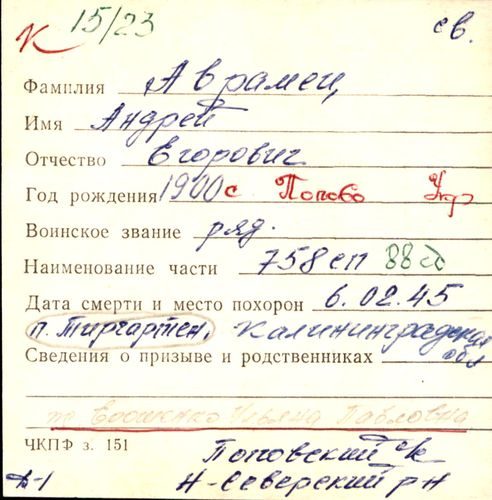 К 15/23 св.
Фамилия Аврамец
Имя Андрей
Отчество Егорович
Год рождения 1900 с Попово Укр
Воинское звание ряд.
Наименование части 758 сп 88 сд
Дата смерти и место похорон 6.02.45
п. Тиргартен, Калининградская обл
Сведения о призыве и родственниках
Ерошенко Ульяна Павловна
ЧКПФ з. 151 Поповский с/с
Н-Северский р-н